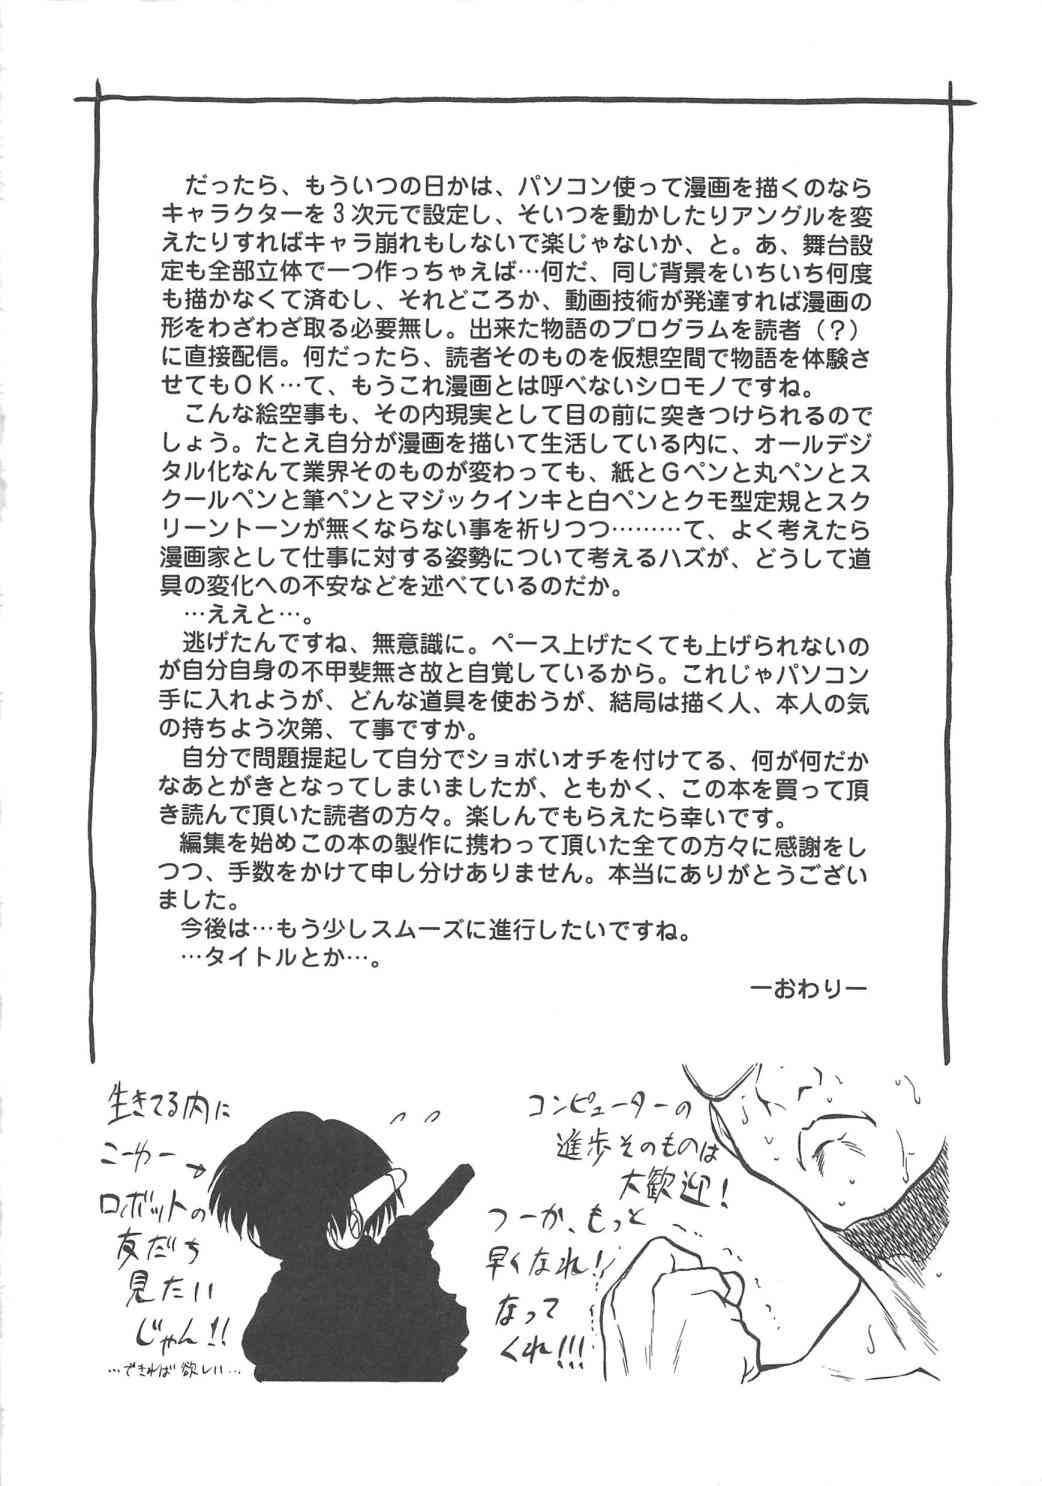 だったら、もういつの日かは、パソコン使って漫画を描くのなら
キャラクターを３次元で設定し、そいつを動かしたりアングルを変
えたりすればキャラ崩れもしないで楽じゃないか、と。あ、舞台設
定も全部立体で一つ作っちゃえば…何だ、同じ背景をいちいち何度
も描かなくて済むし、それどころか、動画技術が発達すれば漫画の
形をわざわざ取る必要無し。出来た物語のプログラムを読者（？）
に直接配信。何だったら、読者そのものを仮想空間で物語を体験さ
せてもＯＫ…て、もうこれ漫画とは呼べないシロモノですね。
こんな絵空事も、その内現実として目の前に突きつけられるので
しょう。たとえ自分が漫画を描いて生活している内に、オールデジ
タル化なんて業界そのものが変わっても、紙とＧペンと丸ペンとス
クールペンと筆ペンとマジックインキと白ペンとクモ型定規とスク
リーントーンが無くならない事を祈りつつ………て、よく考えたら
漫画家として仕事に対する姿勢について考えるハズが、どうして道
具の変化への不安などを述べているのだか。
…ええと…。
逃げたんですね、無意識に。ペース上げたくても上げられないの
が自分自身の不甲斐無さ故と自覚しているから。これじゃパソコン
手に入れようが、どんな道具を使おうが、結局は描く人、本人の気
の持ちよう次第、て事ですか。
自分で問題提起して自分でショボいオチを付けてる、何が何だか
なあとがきとなってしまいましたが、ともかく、この本を買って頂
き読んで頂いた読者の方々。楽しんでもらえたら幸いです。
編集を始めこの本の製作に携わって頂いた全ての方々に感謝をし
つつ、手数をかけて申し分けありません。本当にありがとうござい
ました。
今後は…もう少しスムーズに進行したいですね。
…タイトルとか…。
ーおわりー
コンピューターの
進歩そのものは
大歓迎！
つーか、もっと
早くなれ！
なって
くれ!!!
生きてる内に
こーゆー→
ロボットの
友だち
見たい
じゃん!!
…できれば欲しい…